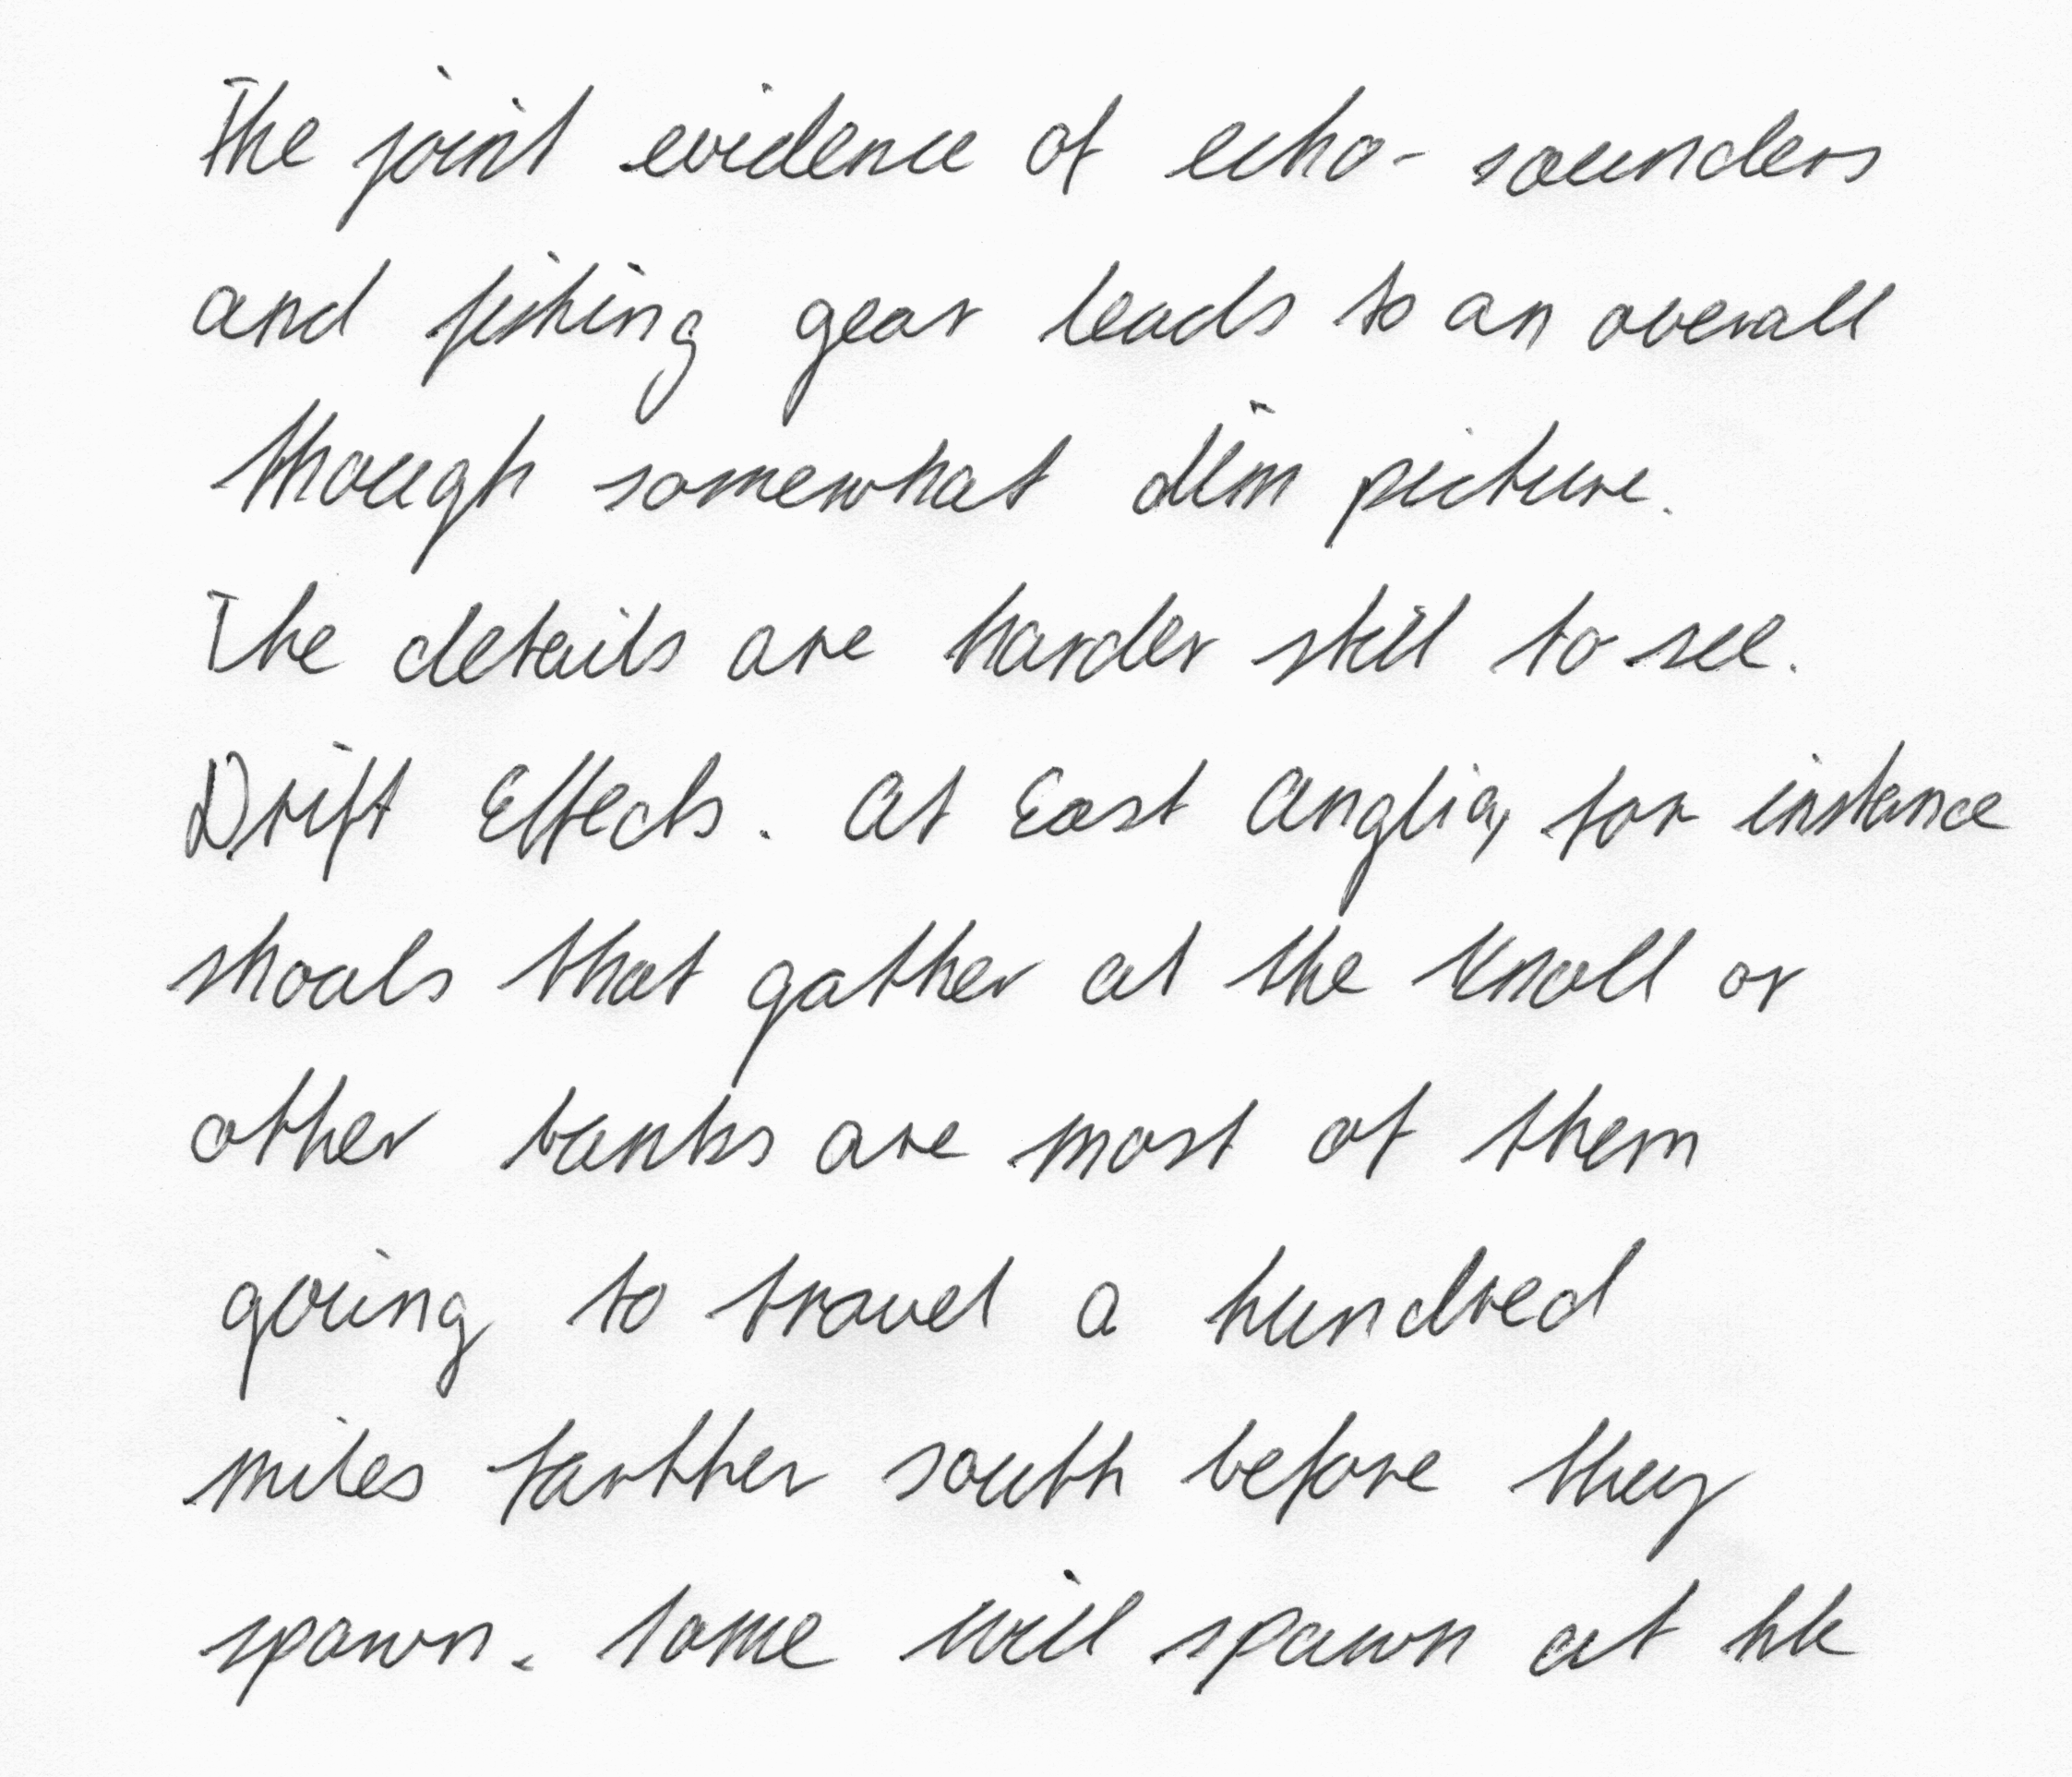 The joint evidence of echo- sounders
and fishing gear leads to an overall
though somewhat dim picture.
The details are harder still to see.
Drift Effects. At East Anglia, for instance
shoals that gather at the Knoll or
other banks are most of them
going to travel a hundred
miles farther south before they
spawn. Some will spawn at